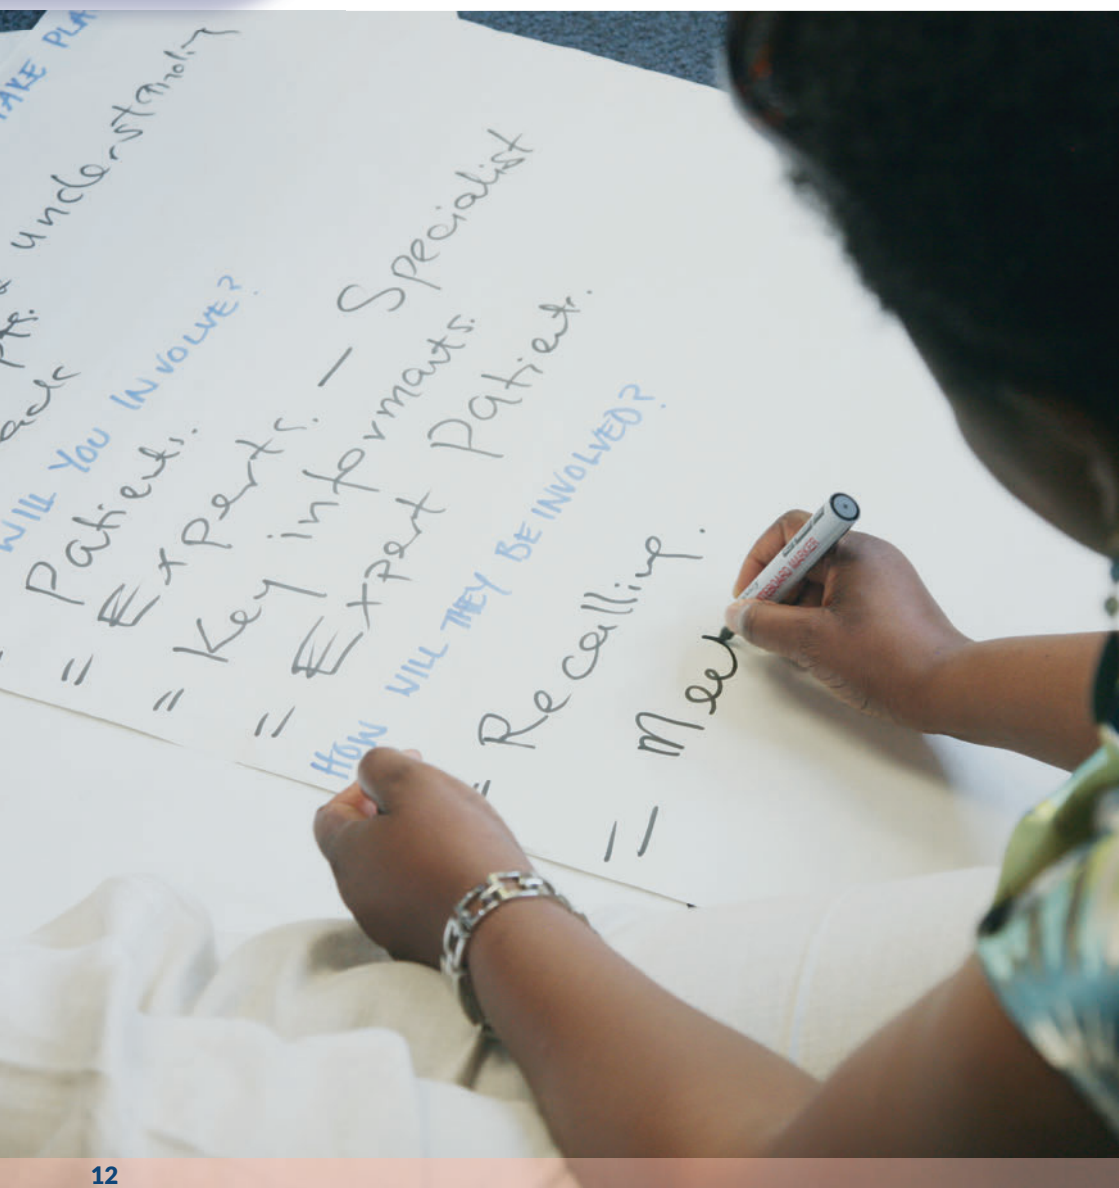 TAKE PLA
understanding
pts.
WILL YOU INVOLVE?
= Patients.
= Experts. — Specialist
= Key informants.
= Expert Patients.
HOW WILL THEY BE INVOLVED?
= Recalling.
= Mee
12